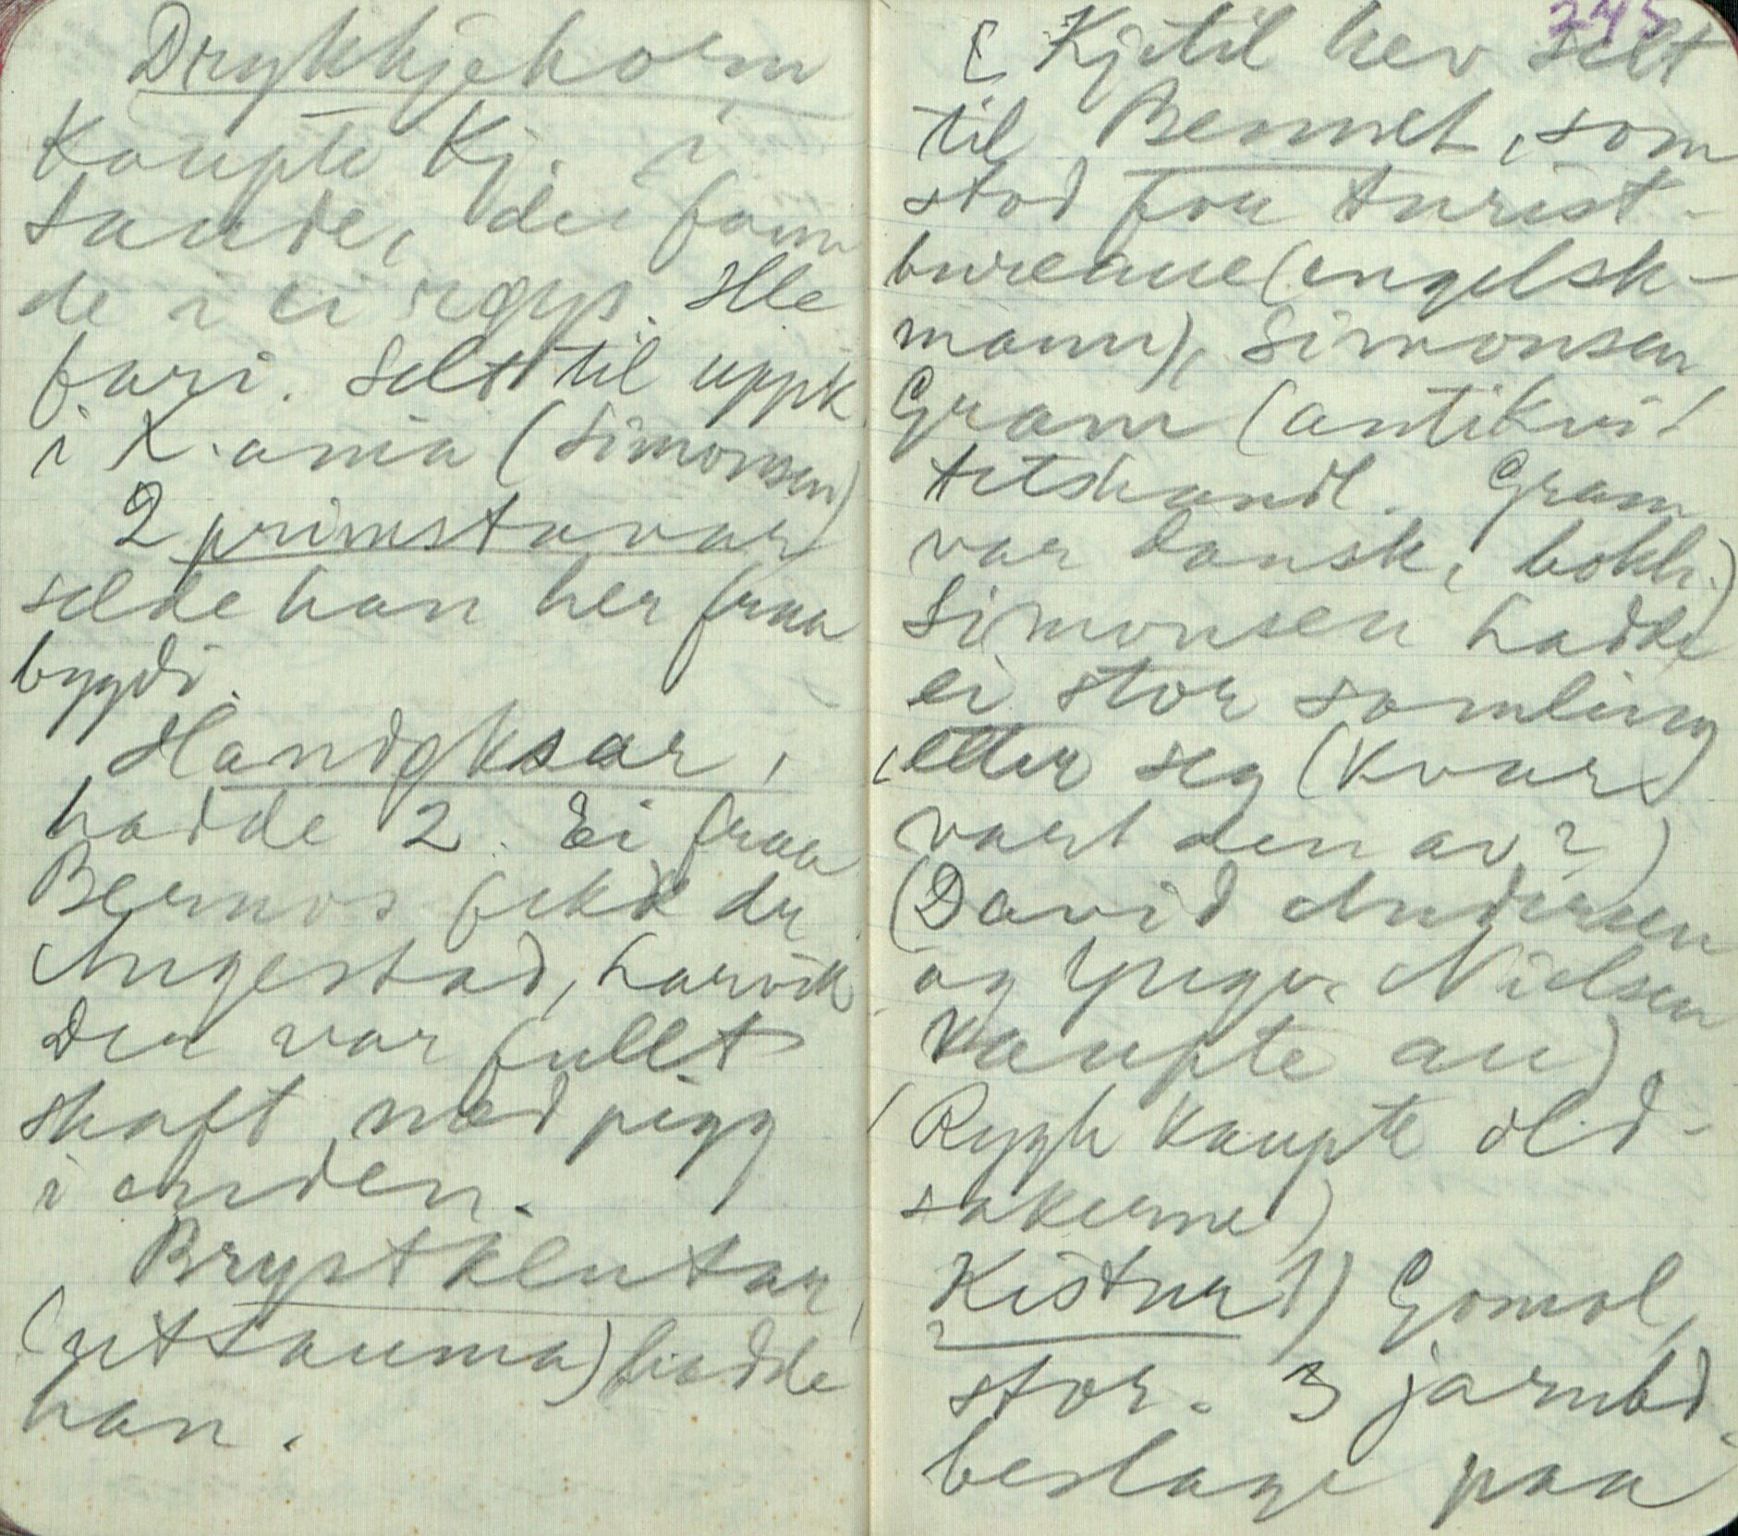 Drykkjehorn
Kaupte Kj. i
Sande, dei fann
de i ei røys. Ille
fari. Selt til uppk.
i X.ania (Simonsen)
2 primstavar
selde han her fraa
bygdi.
Handøksar,
hadde 2. Ei fraa
Bernos fekk dr
Angestad, Larvik
Den var fullt
skaft med pigg
i enden.
Brystklutar
(utsauma) hadde
han.
245
[ Kjetil hev selt
til Bennet, som
stod for turist-
bureaue (engelsk-
mann), Simonsen,
Gram (antikvi-
tetshandl. Gram
var dansk, bokh.)
Simonsen hadde
ei stor samling
etter seg (kvar
vart den av?)
(David Andersen
og Yngv. Nielsen
kaupte au)
(Rygh kaupte old-
sakerne)
Kistur 1) Gomol,
stor. 3 jarnbd.
beslage paa